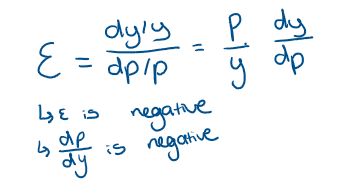 ε = dy/y / dp/p = p/y dy/dp
↳ ε is negative
↳ dp/dy is negative